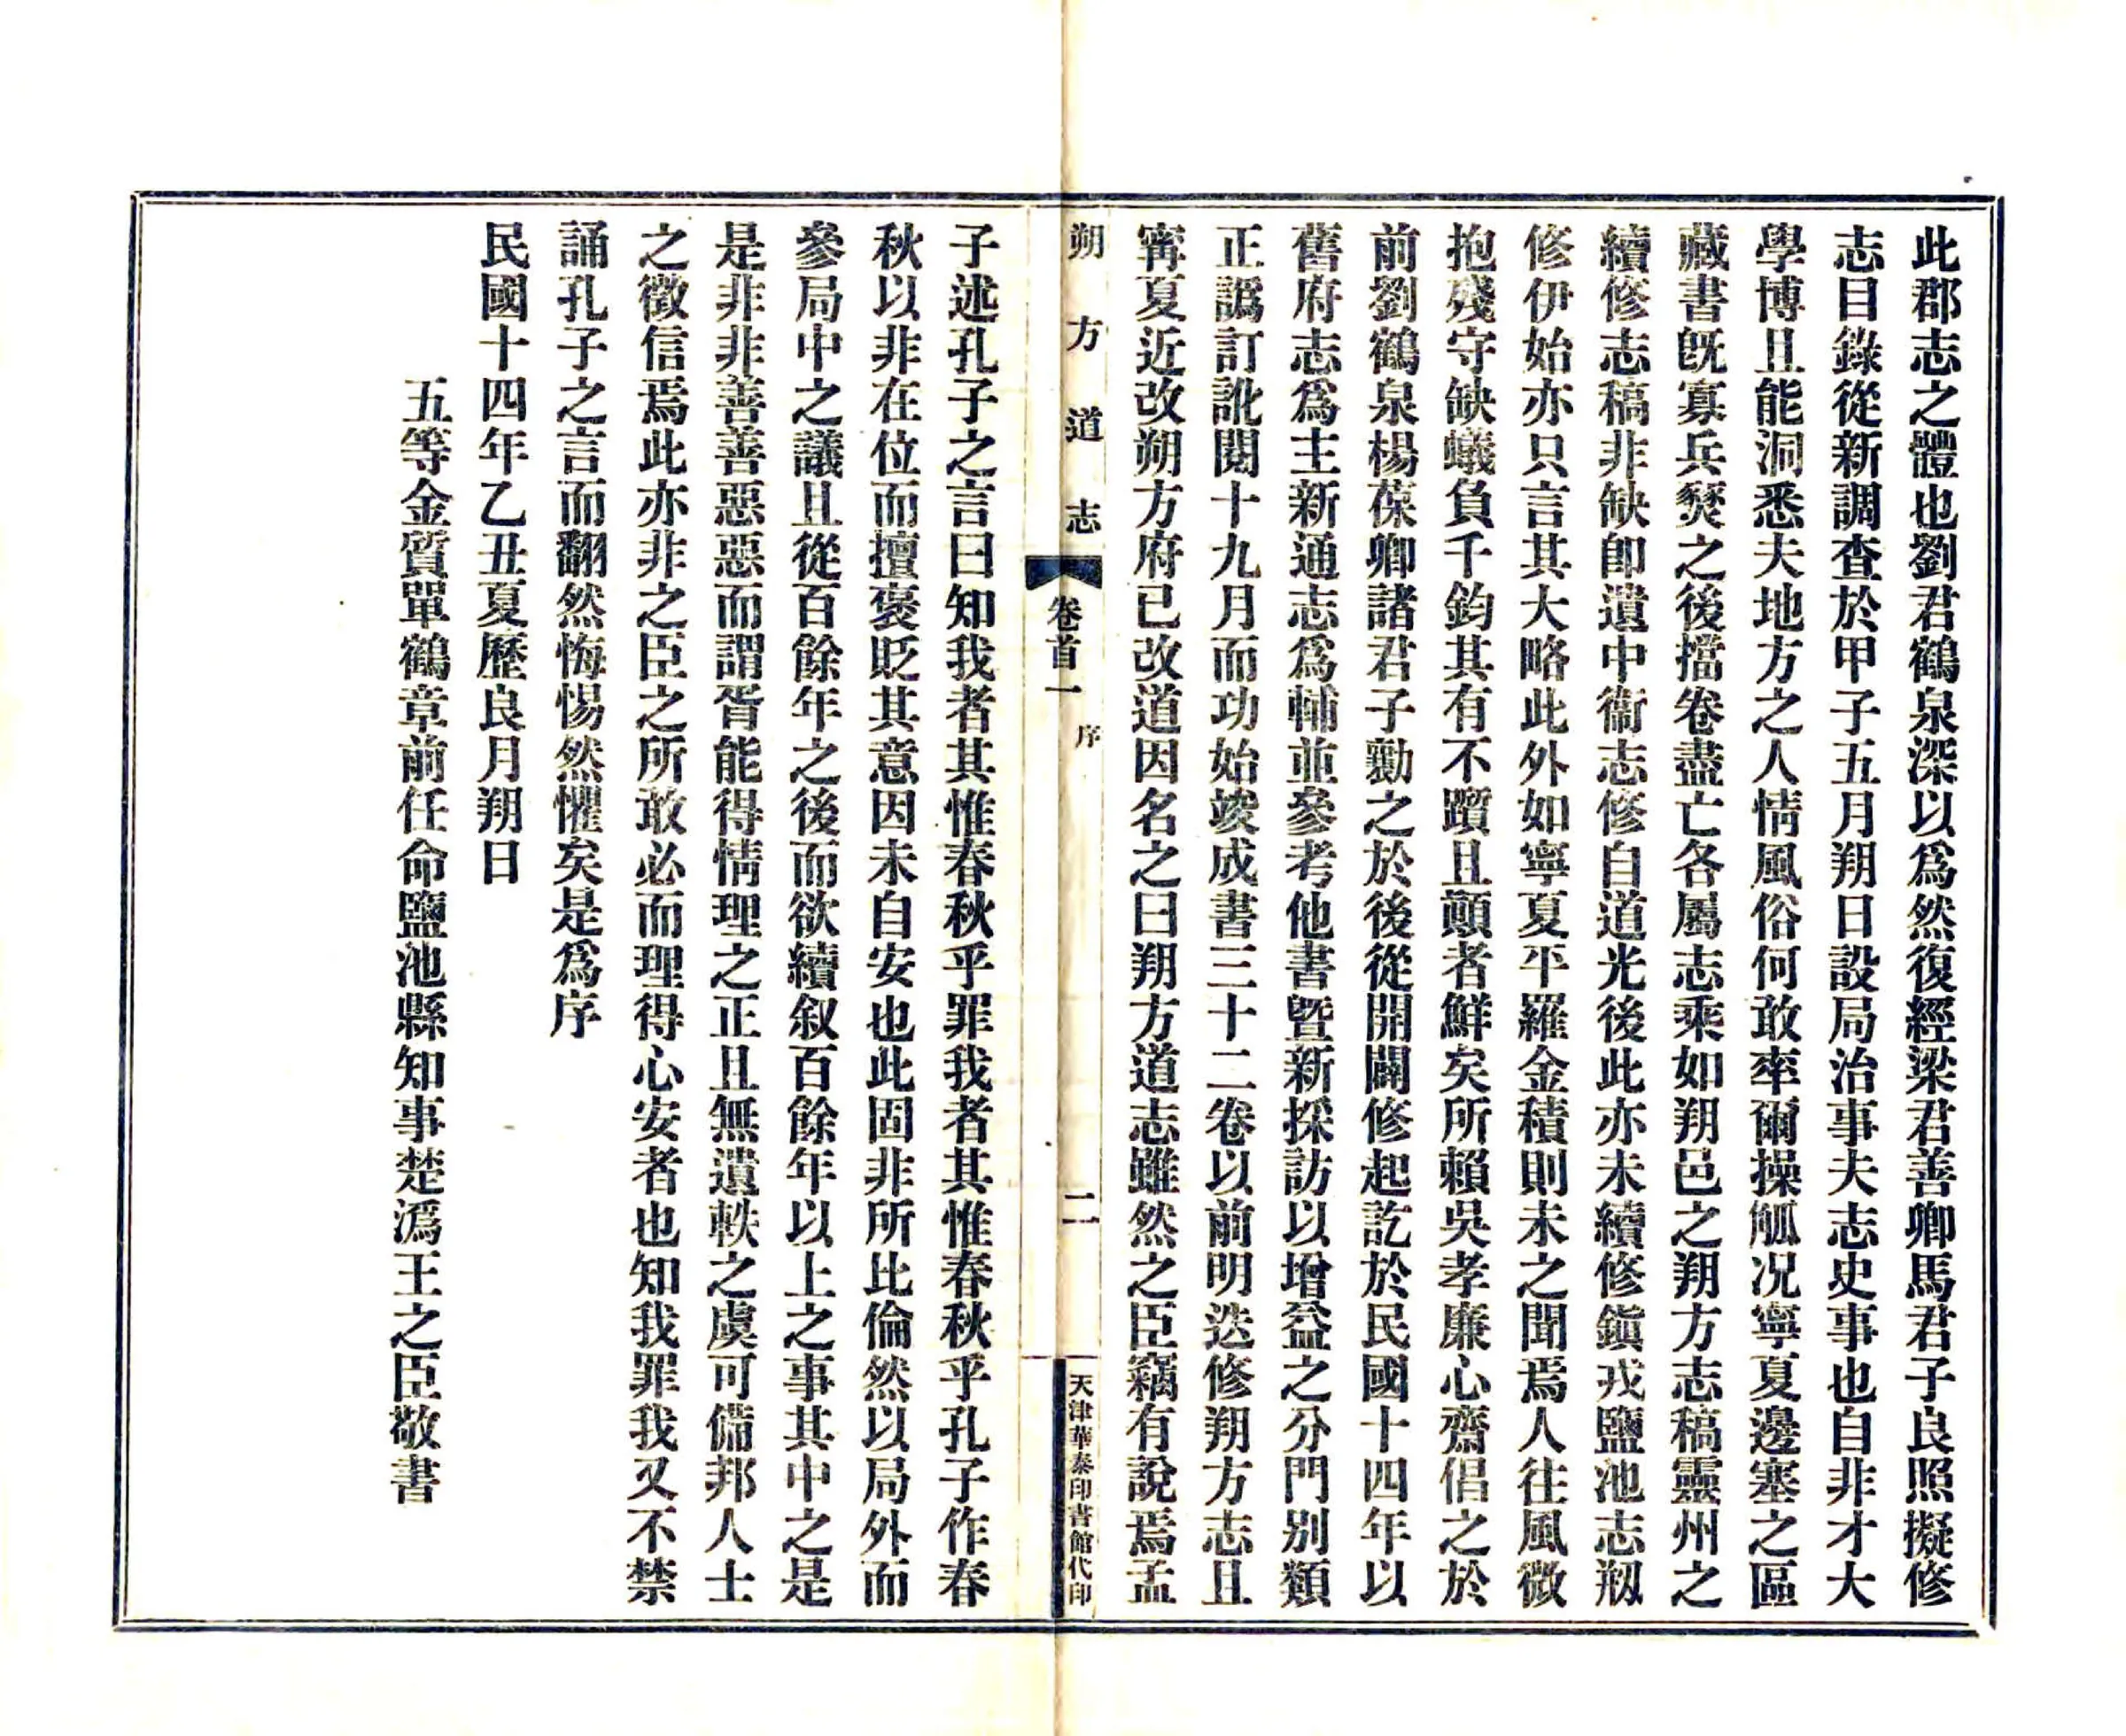 此郡志之體也劉君鶴泉深以爲然復經梁君善卿馬君子良照擬修
志目錄從新調查於甲子五月朔日設局治事夫志史事也自非才大
學博且能洞悉夫地方之人情風俗何敢率爾操觚况寧夏邊塞之區
藏書旣寡兵燹之後擋卷盡亡各屬志乘如朔邑之朔方志稿靈州之
續修志稿非缺卽遺中衞志修自道光後此亦未續修鎭戎鹽池志剏
修伊始亦只言其大略此外如寧夏平羅金積則未之聞焉人往風微
抱殘守缺蟻負千鈞其有不躓且顚者鮮矣所賴吳孝廉心齋倡之於
前劉鶴泉楊葆卿諸君子勷之於後從開闢修起訖於民國十四年以
舊府志爲主新通志爲輔並參考他書曁新採訪以增益之分門別類
正譌訂訛閱十九月而功始竣成書三十二卷以前明迭修朔方志且
寗夏近改朔方府已改道因名之曰朔方道志雖然之臣竊有說焉孟
朔方道志 卷首一 序 二 天津華泰印書館代印
子述孔子之言曰知我者其惟春秋乎罪我者其惟春秋乎孔子作春
秋以非在位而擅褒貶其意因未自安也此固非所比倫然以局外而
參局中之議且從百餘年之後而欲續叙百餘年以上之事其中之是
是非非善善惡惡而謂胥能得情理之正且無遺軼之虞可備邦人士
之徵信焉此亦非之臣之所敢必而理得心安者也知我罪我又不禁
誦孔子之言而翻然悔惕然懼矣是爲序
民國十四年乙丑夏歷良月朔日
五等金質單鶴章前任命鹽池縣知事楚潙王之臣敬書